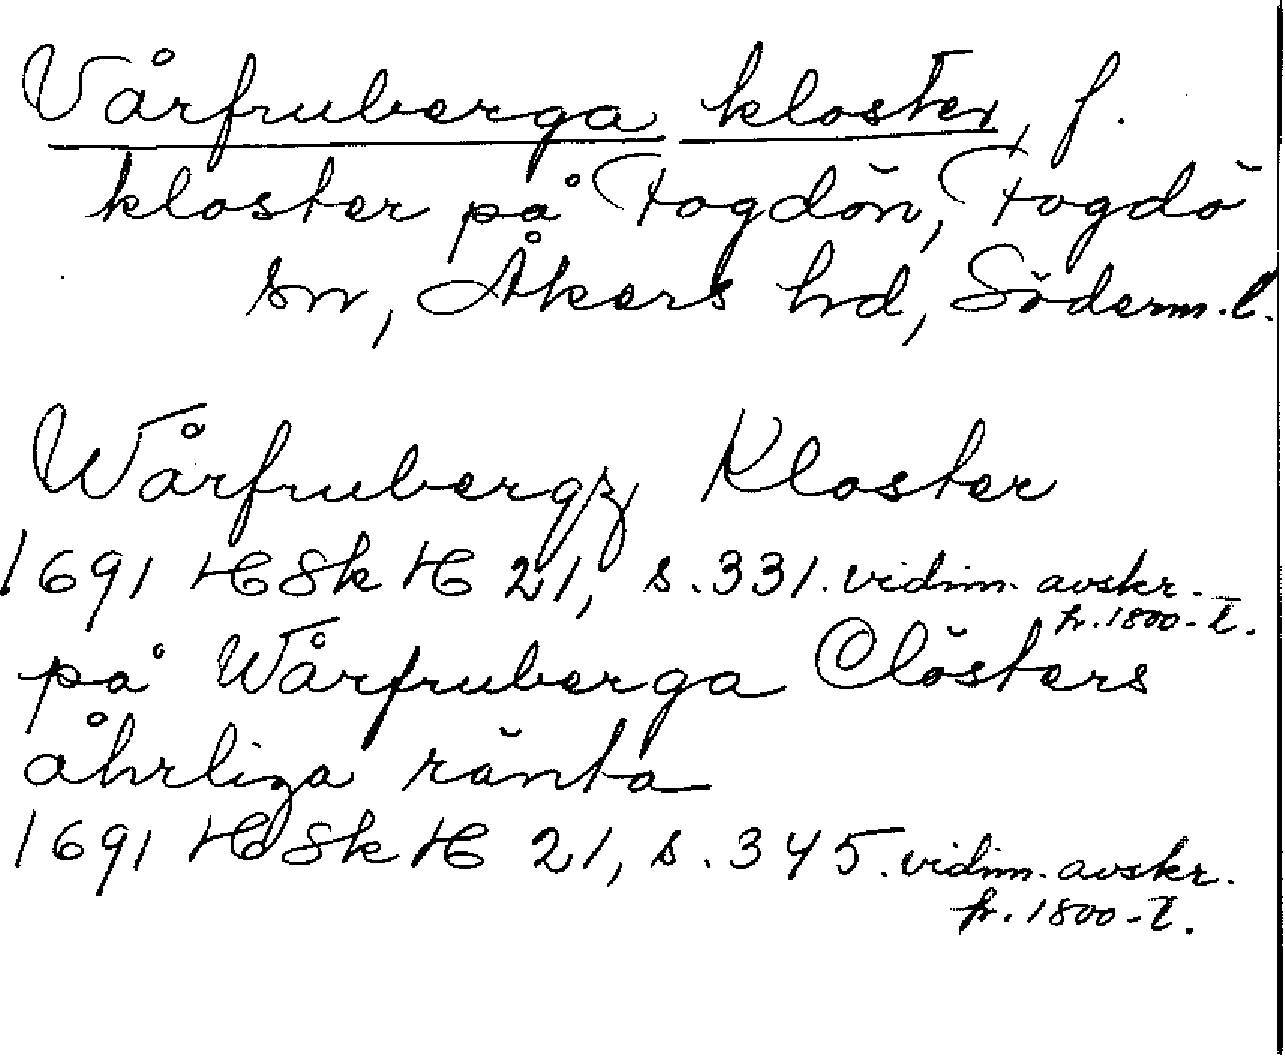 Vårfruberga kloster, f.
kloster på Fogdön, Fogdö
sn, Åkers hd, Söderm.l.
Wårfrubergz Kloster
1691 HSk H 21, s. 331. vidim. avskr.
fr. 1800-t.
på Wårfruberga Clösters
åhrliga ränta
1691 HSk H 21, s. 345. vidim. avskr.
fr. 1800-t.